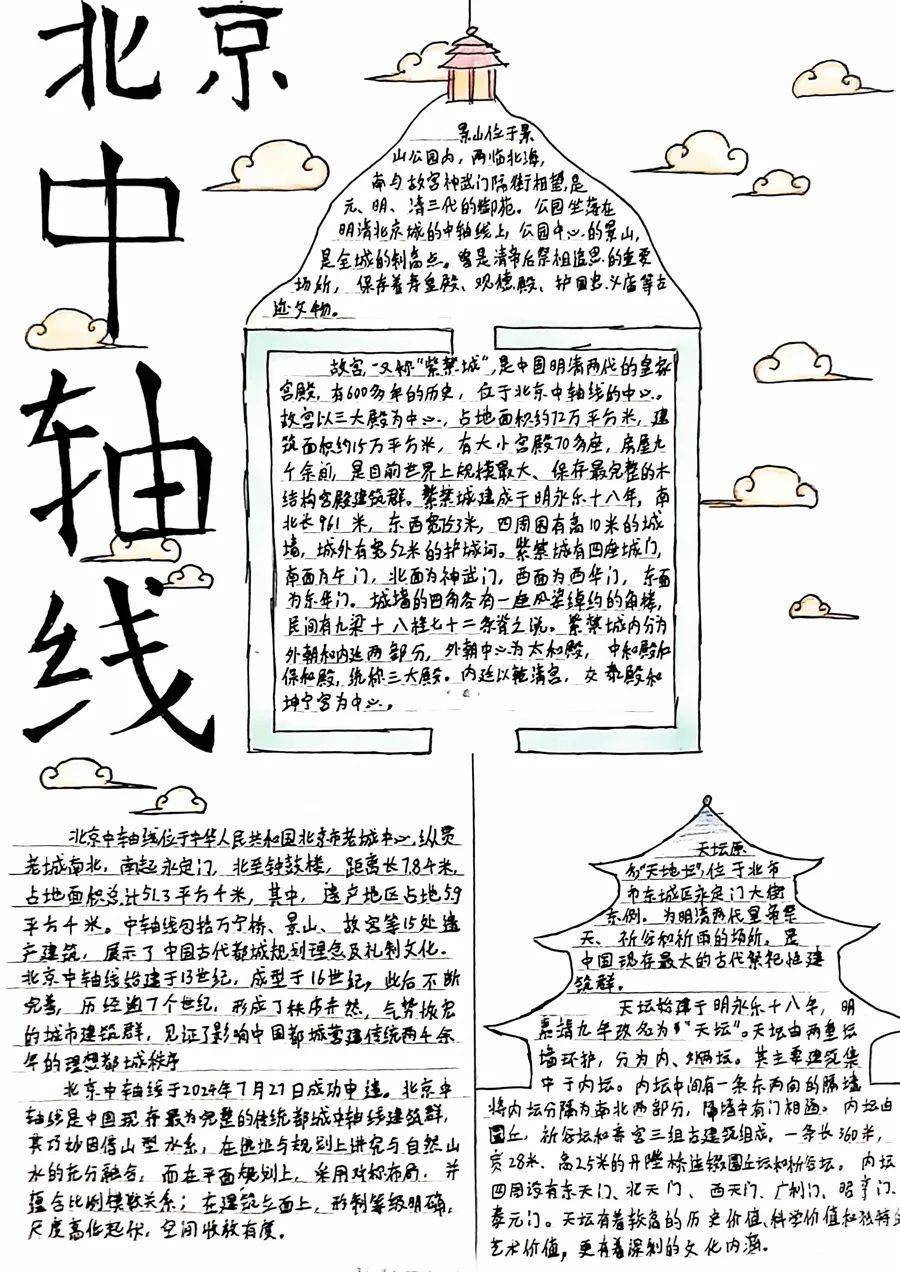 北京
中
轴
线
景山位于景
山公园内，西临北海，
南与故宫神武门隔街相望，是
元、明、清三代的御苑。公园坐落在
明清北京城的中轴线上，公园中心的景山，
是全城的制高点。曾是清帝后祭祖追思的重要
场所，保存着寿皇殿、观德殿、护国忠义庙等古
迹文物。
故宫，又称“紫禁城”，是中国明清两代的皇家
宫殿，有600多年的历史，位于北京中轴线的中心。
故宫以三大殿为中心，占地面积约72万平方米，建
筑面积约15万平方米，有大小宫殿70多座，房屋九
千余间，是目前世界上规模最大、保存最完整的木
结构宫殿建筑群。紫禁城建成于明永乐十八年，南
北长961米，东西宽753米，四周围有高10米的城
墙，城外有宽52米的护城河。紫禁城有四座城门，
南面为午门，北面为神武门，西面为西华门，东面
为东华门。城墙的四角各有一座风姿绰约的角楼，
民间有九梁十八柱七十二条脊之说。紫禁城内分为
外朝和内廷两部分，外朝中心为太和殿，中和殿和
保和殿，统称三大殿。内廷以乾清宫，交泰殿和
坤宁宫为中心。
北京中轴线位于中华人民共和国北京市老城中心，纵贯
老城南北，南起永定门，北至钟鼓楼，距离长7.8千米，
占地面积总计51.3平方千米，其中，遗产地区占地5.9
平方千米。中轴线包括万宁桥、景山、故宫等15处遗
产建筑，展示了中国古代都城规划理念及礼制文化。
北京中轴线始建于13世纪，成型于16世纪，此后不断
完善，历经逾7个世纪，形成了秩序井然，气势恢宏
的城市建筑群，见证了影响中国都城营建传统两千余
年的理想都城秩序
北京中轴线于2024年7月27日成功申遗。北京中
轴线是中国现存最为完整的传统都城中轴线建筑群，
其巧妙因借山型水系，在选址与规划上讲究与自然山
水的充分融合，而在平面规划上，采用对称布局，并
蕴含比例模数关系；在建筑立面上，形制等级明确，
尺度高低起伏，空间收放有度。
天坛原
名“天地坛”，位于北京
市东城区永定门大街
东侧。为明清两代皇帝祭
天、祈谷和祈雨的场所。是
中国现存最大的古代祭祀性建
筑群。
天坛始建于明永乐十八年，明
嘉靖九年改名为“天坛”。天坛由两重坛
墙环护，分为内、外两坛。其主要建筑集
中于内坛。内坛中间有一条东西向的隔墙
将内坛分隔为南北两部分，隔墙中有门相通。内坛由
圜丘，祈谷坛和斋宫三组古建筑组成。一条长360米，
宽28米、高2.5米的丹陛桥连缀圜丘坛和祈谷坛。内坛
四周设有东天门、北天门、西天门、广利门、昭亨门、
泰元门。天坛有着较高的历史价值、科学价值和独特的
艺术价值，更有着深刻的文化内涵。